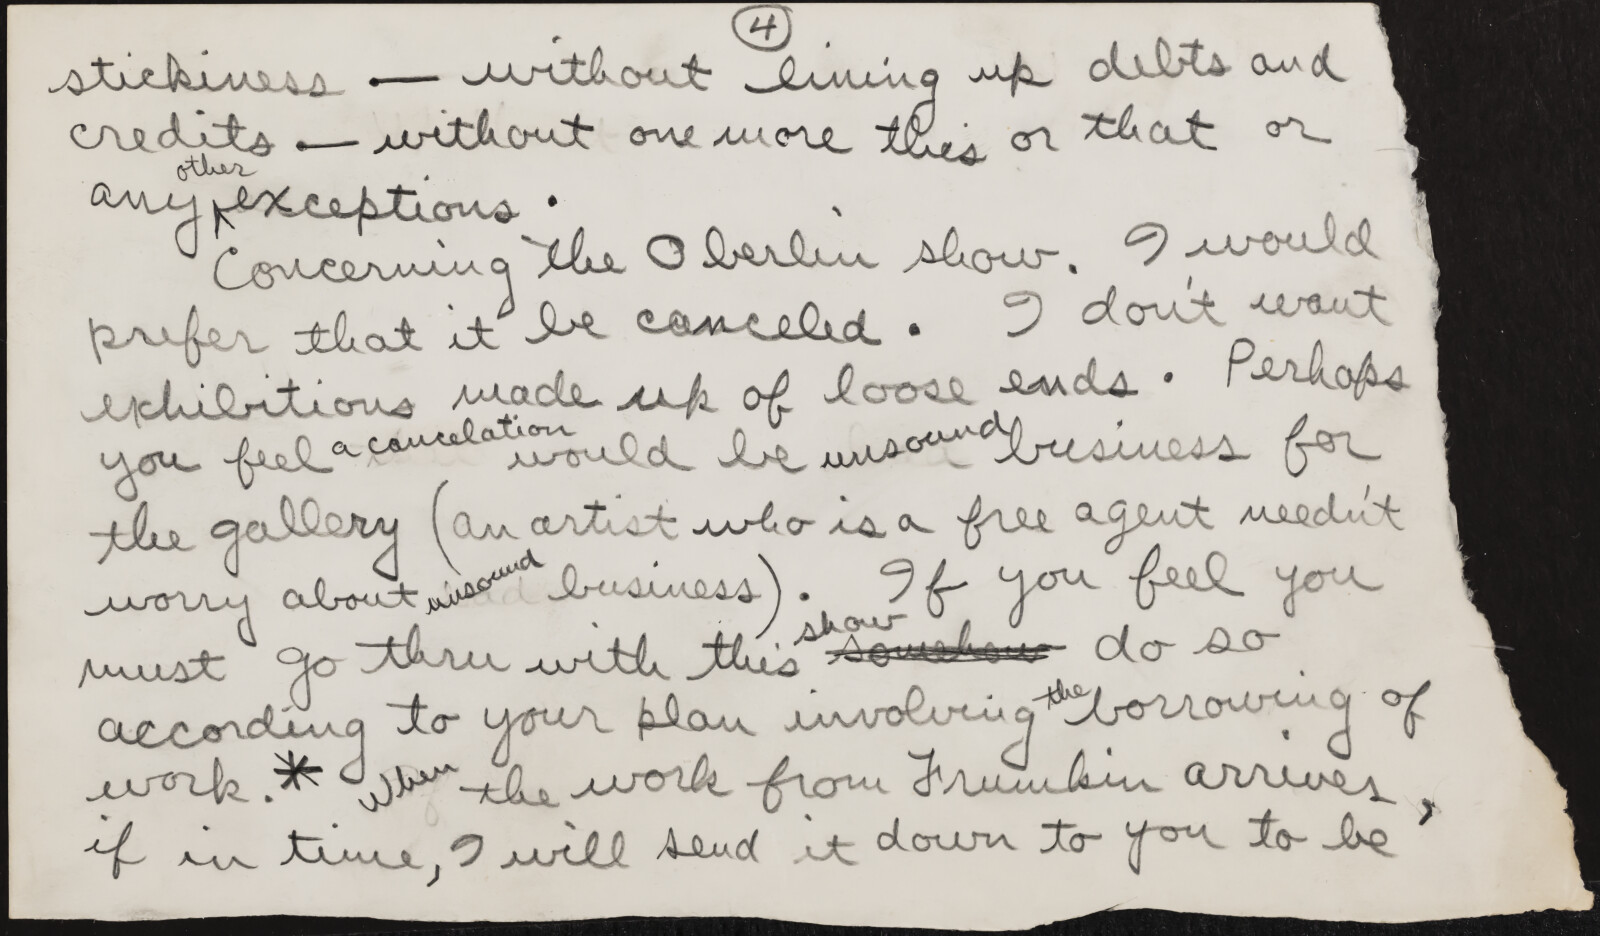 4
stickiness — without lining up debts and
credits — without one more this or that or
any other exceptions.
Concerning the Oberlin show. I would
prefer that it be canceled. I don't want
exhibitions made up of loose ends. Perhaps
you feel a cancelation would be unsound business for
the gallery (an artist who is a free agent needn't
worry about unsound business). If you feel you
must go thru with this show somehow do so
according to your plan involving the borrowing of
work.* When the work from Frumkin arrives,
if in time, I will send it down to you to be